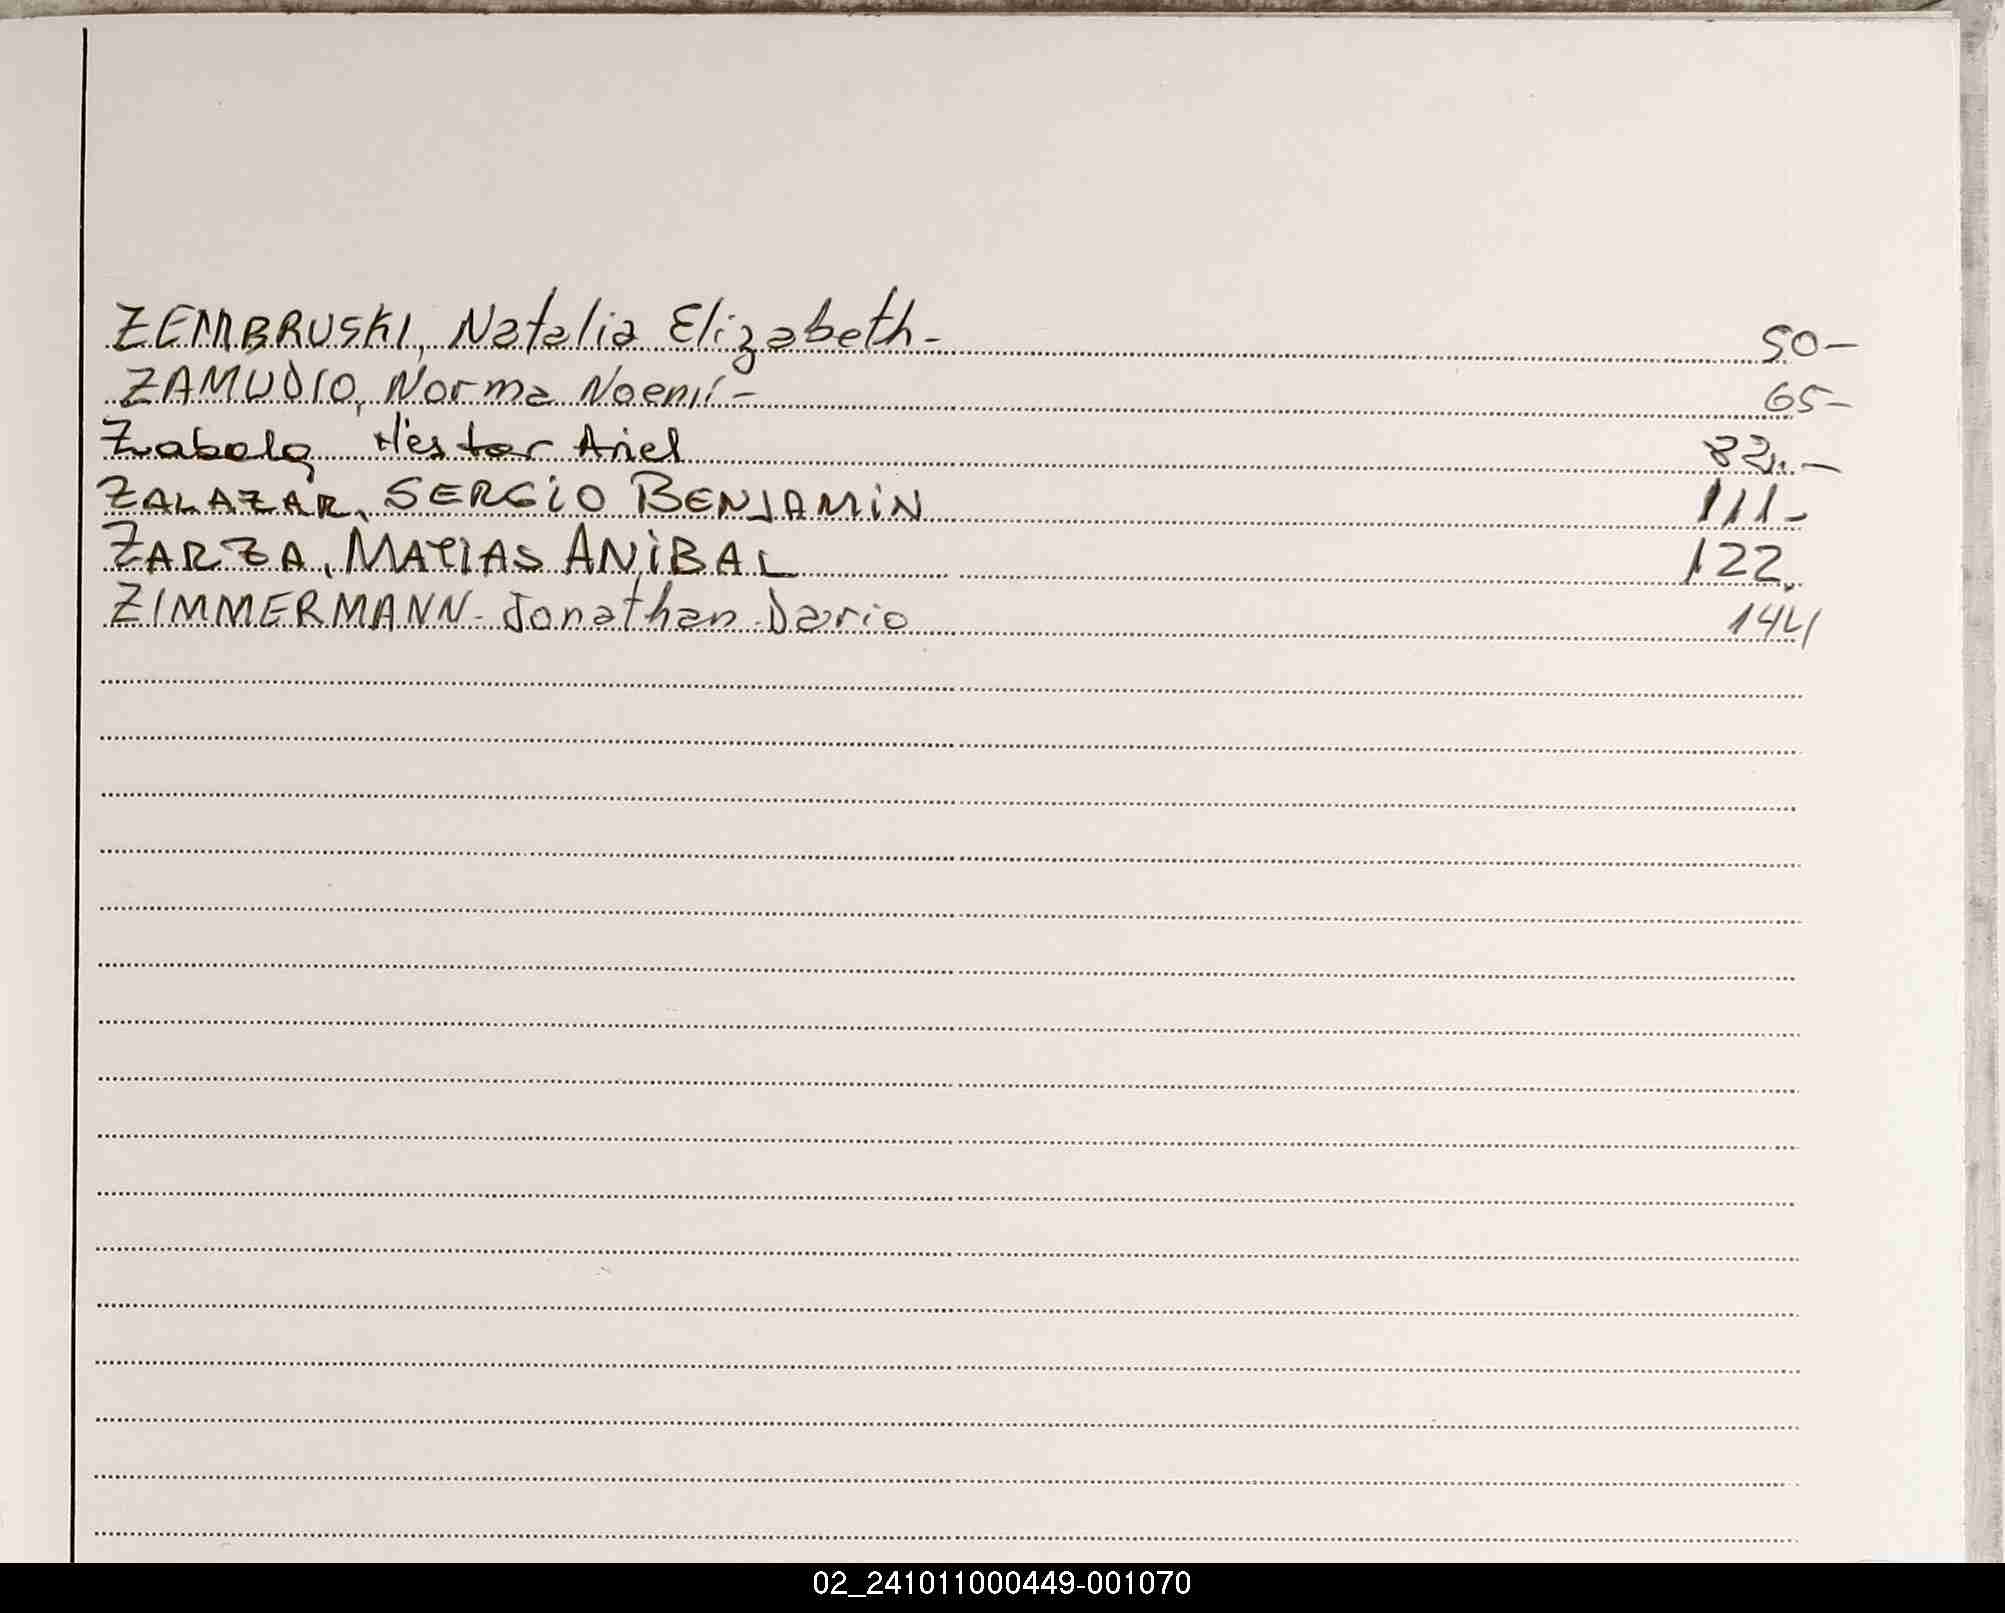 ZEMBRUSKI, Natalia Elizabeth- 50-
ZAMUDIO, Norma Noemí- 65-
Zabala Néstor Ariel 82.-
ZALAZAR, SERGIO BENJAMIN 111-
ZARZA, MATIAS ANIBAL 122.
ZIMMERMANN- Jonathan Dario 144
02_241011000449-001070